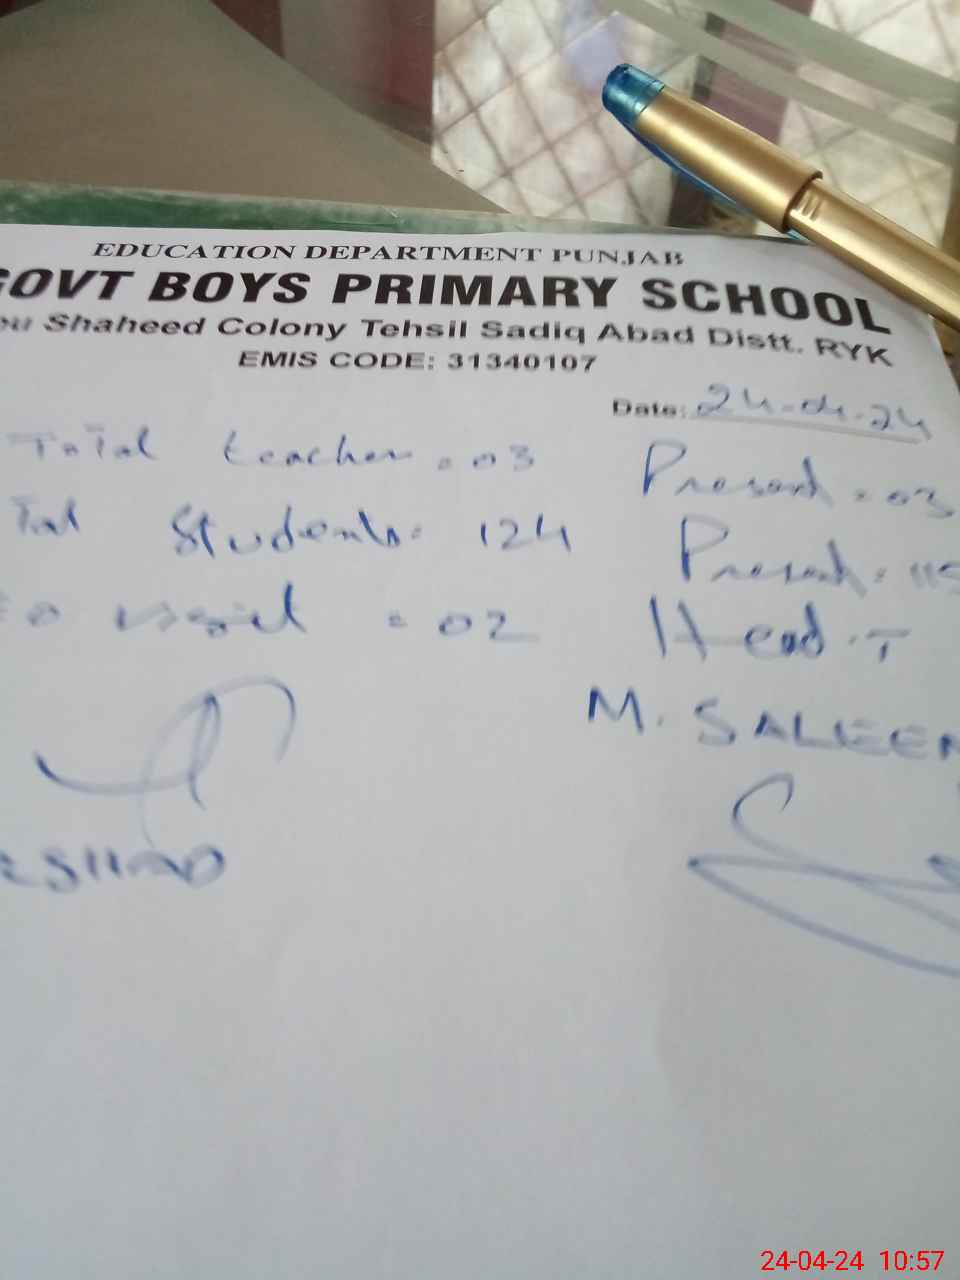 EDUCATION DEPARTMENT PUNJAB
GOVT BOYS PRIMARY SCHOOL
Shaheed Colony Tehsil Sadiq Abad Distt. RYK
EMIS CODE: 31340107
Date: 24-04-24
Total teacher = 03 Present = 03
Students = 124 Present = 115
visit = 02 Head.T
M. SALEEM
24-04-24 10:57